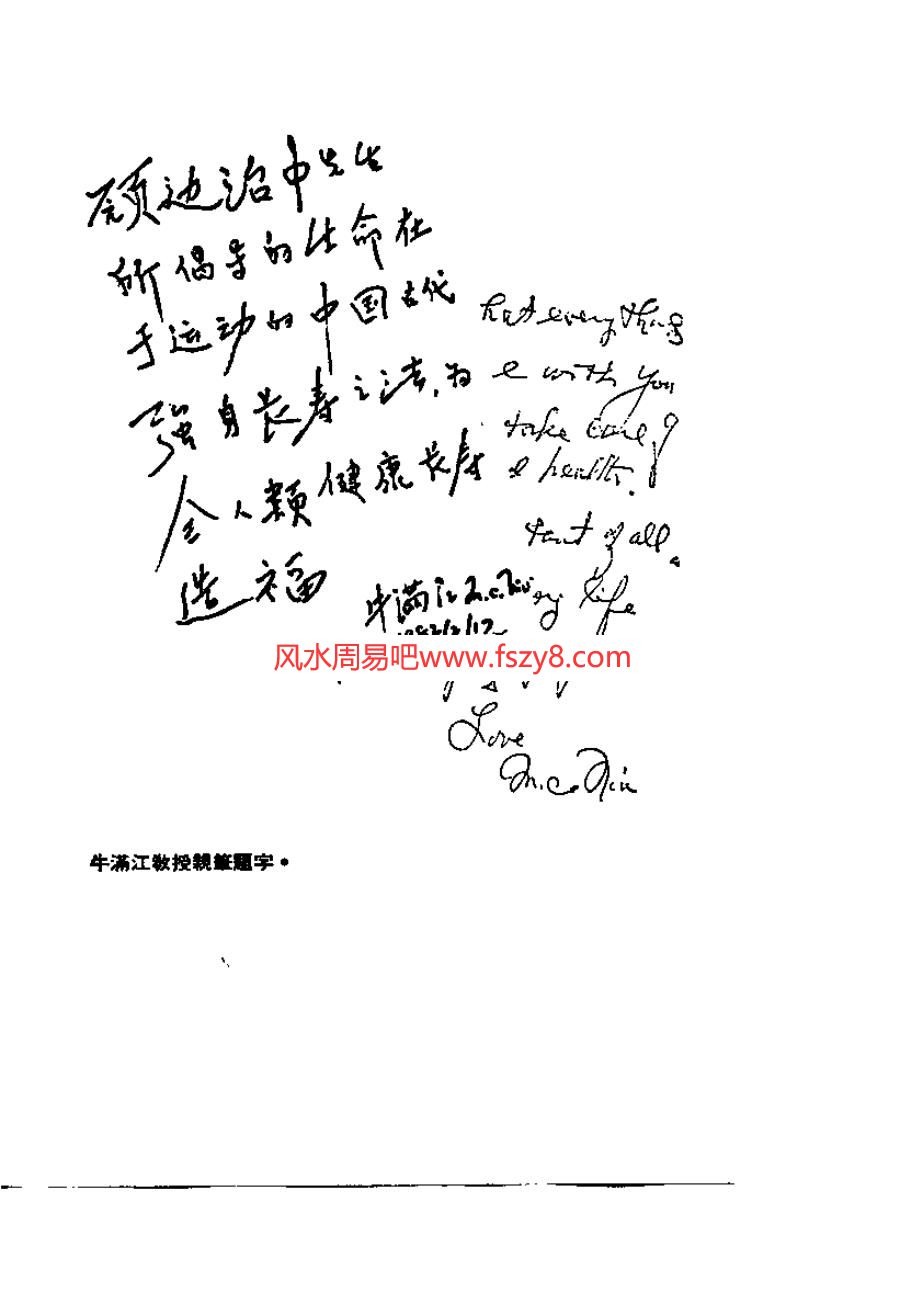 愿边治中先生
所倡导的生命在
于运动的中国古代
强身长寿之法,为
全人類健康长寿
造福
牛满江 M.C. Niu
hat everything
e with you
take care of
e health.
tant of all.
ng life
风水周易吧www.fszy8.com
Love
M.C. Niu
牛滿江教授親筆題字。